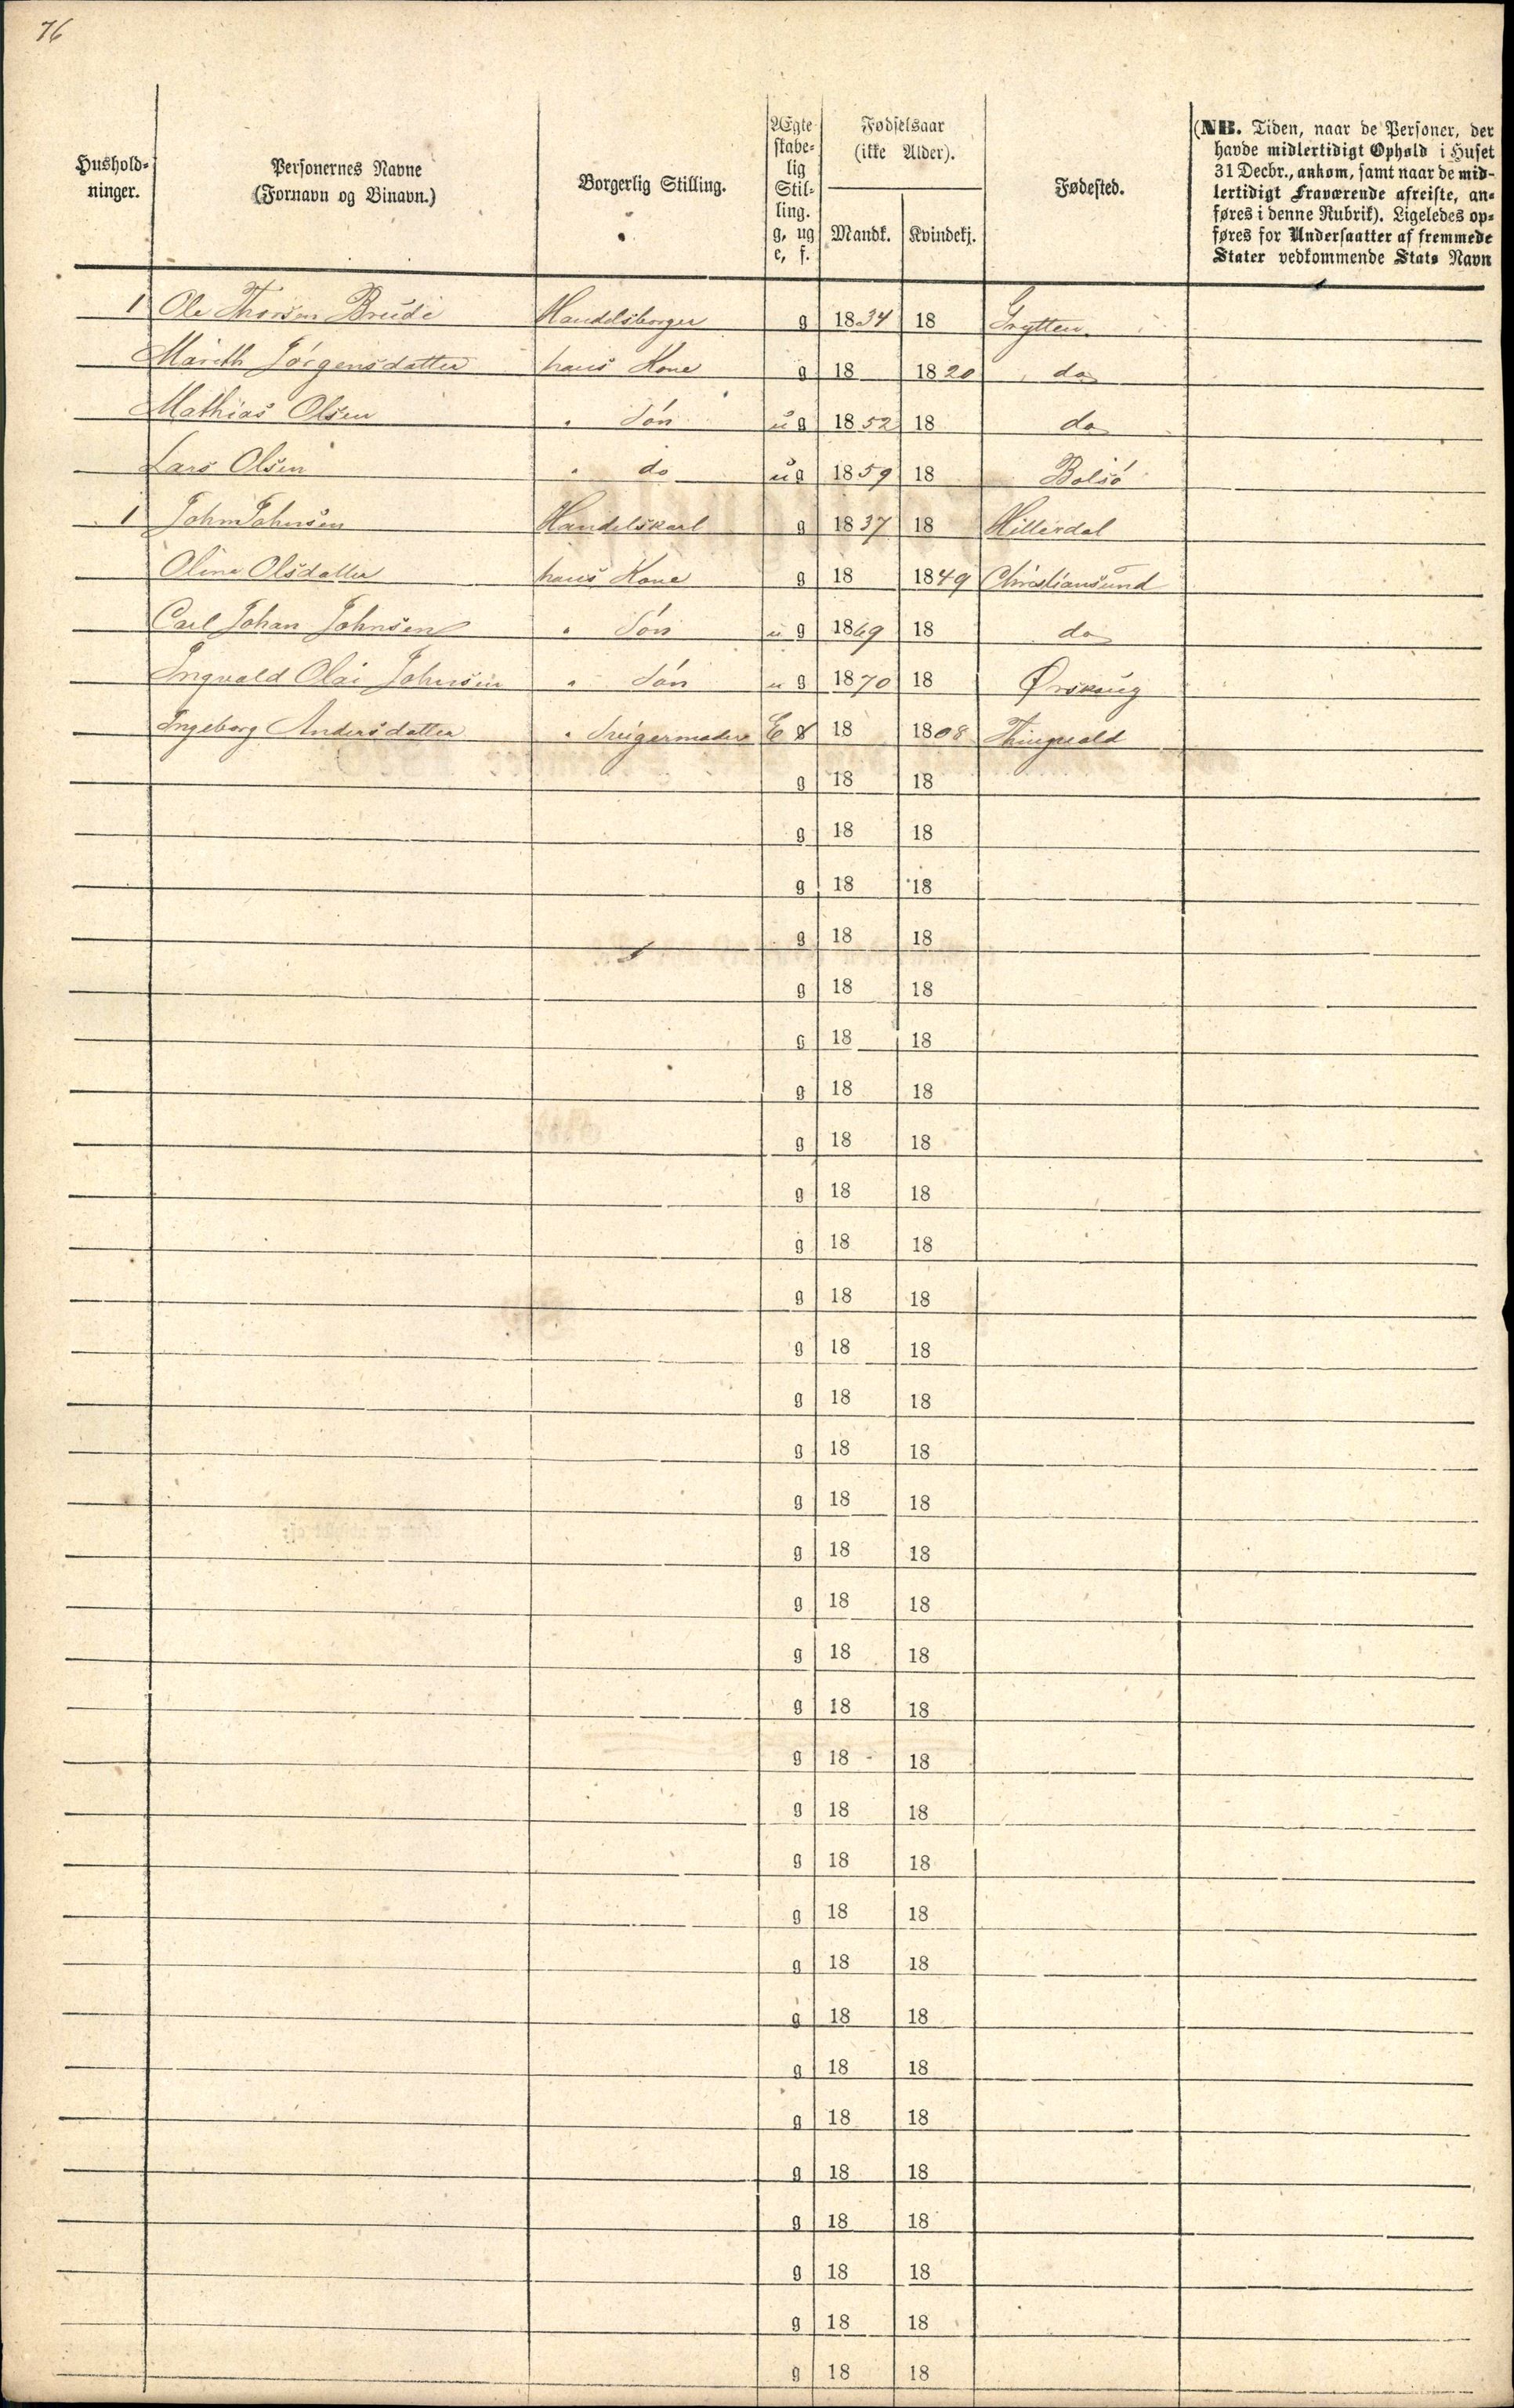 76
Hushold-
ninger.
Personernes Navne
(Fornavn og Binavn.)
Borgerlig Stilling.
Ægte
skabe-
lig
Stil-
ling.
g, ug
e, f.
Fødselsaar
(ikke Alder).
Mandk. Kvindekj.
Fødested.
(NB. Tiden, naar de Personer, der
havde midlertidigt Ophold i Huset
31 Decbr., ankom, samt naar de mid-
lertidigt Fraværende afreiste, an-
føres i denne Rubrik). Ligeledes op-
føres for Undersaatter af fremmede
Stater vedkommende Stats Navn
1 Ole Thorsen Brude Handelsborger g 1834 18 Grytten
Marith Jørgensdatter hans Kone g 18 1820 do
Mathias Olsen " Søn ug 1852 18 do
Lars Olsen " do ug 1859 18 Bolsø
1 John Johnsen Handelskarl g 1837 18 Hitterdal
Oline Olsdatter hans Kone g 18 1849 Christiansund
Carl Johan Johnsen " Søn ug 1869 18 do
Ingvald Olai Johnsen " Søn ug 1870 18 Ørskoug
Ingeborg Andersdatter " Svigermoder E g 18 1808 Thingvold
g 18 18
g 18 18
g 18 18
g 18 18
g 18 18
g 18 18
g 18 18
g 18 18
g 18 18
g 18 18
g 18 18
g 18 18
g 18 18
g 18 18
g 18 18
g 18 18
g 18 18
g 18 18
g 18 18
g 18 18
g 18 18
g 18 18
g 18 18
g 18 18
g 18 18
g 18 18
g 18 18
g 18 18
g 18 18
g 18 18
g 18 18
g 18 18